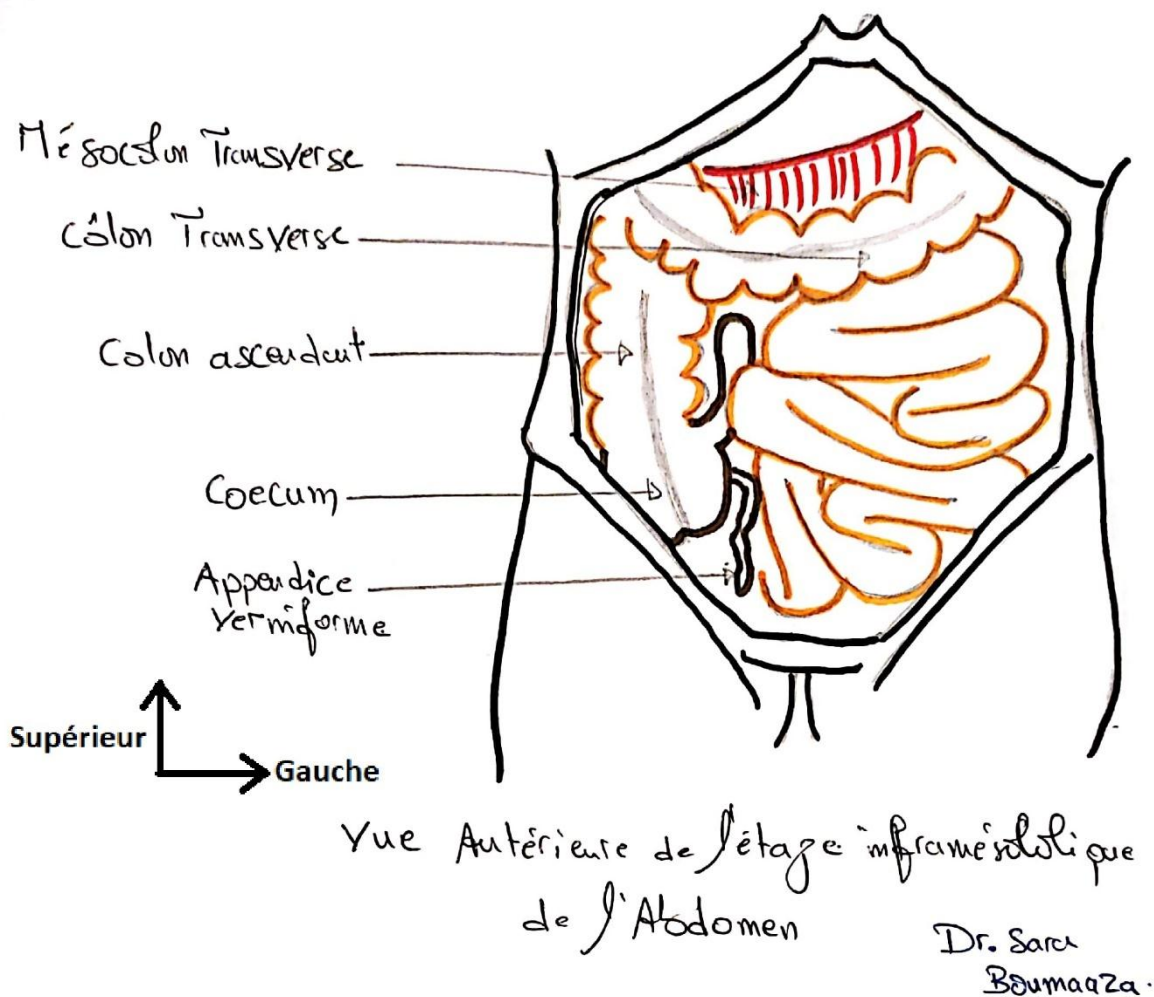 Mésocolon Transverse
Côlon Transverse
Colon ascendant
Coecum
Appendice
Vermiforme
Supérieur
Gauche
Vue Antérieure de l'étage inframésolique
de l'Abdomen
Dr. Sara
Boumaaza.